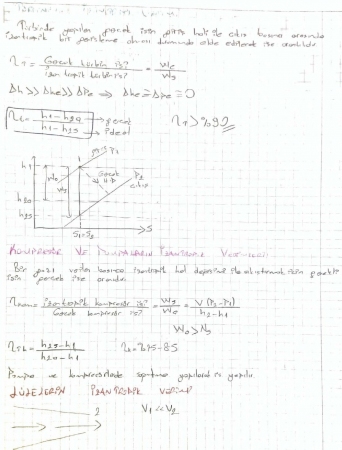 Türbinde yapılan gerçek işin giriş hali ile çıkış basıncı arasında
izantropik bir genişleme olması durumunda elde edilecek işe oranıdır.
η_T = Gerçek türbin işi / izantropik türbin işi = We / Ws
Δh >> Δke >> Δpe ⇒ Δke = Δpe = 0
h1 - h2a → gerçek
h1 - h2s → ideal
η_T > %90
h
giriş P1
h1
Gerçek
P2
çıkış
h2a
h2s
S1=S2
S
KOMPRESÖR VE POMPALARIN İZANTROPİK VERİMLERİ
Bir gazı verilen basınca izantropik hal değişimi ile sıkıştırmak için gerekli
işin gerçek işe oranıdır
= izantropik kompresör işi / Gerçek kompresör işi = Ws / We = V (P2-P1) / h2-h1
= h2s-h1 / h2a-h1
Pompa ve kompresörlerde soğutma yapılarak
LÜLELERİN İZANTROPİK VERİMİ
2
V1 << V2